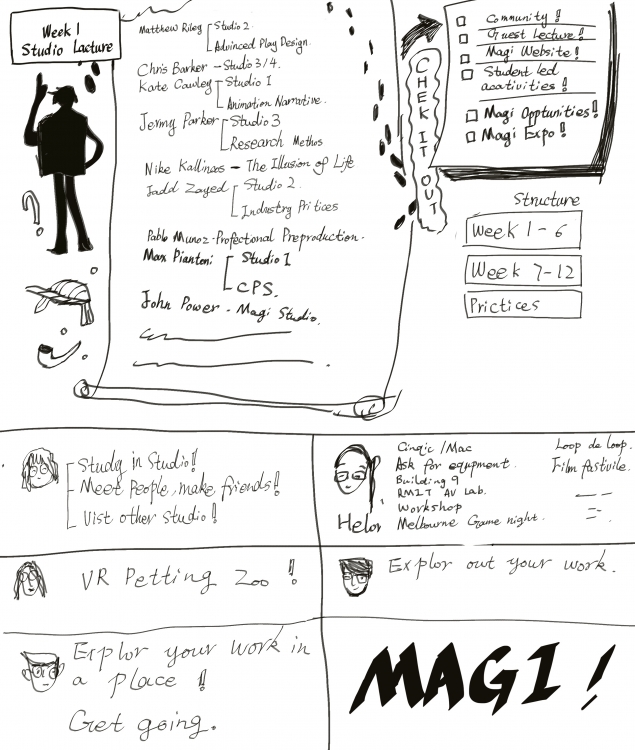 Week 1
Studio Lacture
Matthew Riley Studio 2.
Advinced Play Design
Chris Barker - Studio 3/4.
Kate Cawley Studio 1
Animation Narrative.
Jermy Parker Studio 3
Research Methos
Nike Kallinaos - The Illusion of Life
Jadd Zayed Studio 2.
Industry Pritices
Pablo Munoz - Profectonal Preproduction.
Max Piantoni Studio 1
CPS.
John Power - Magi Studio.
CHEK IT OUT
Community!
Guest Lecture!
Magi Website!
Student led
acativities!
Magi Opptunities!
Magi Expo!
Structure
Week 1 - 6
Week 7-12
Prictices
Study in Studio!
Meet people, make friends!
Vist other Studio!
Helor
Cinqic / Mac
Ask for equpment.
Building 9
RMIT AV Lab.
Workshop
Melbourne Game night.
Loop de loop.
Film fastivile.
VR Petting Zoo!
Explor out your work.
Explor your work in
a place!
Get going.
MAGI!